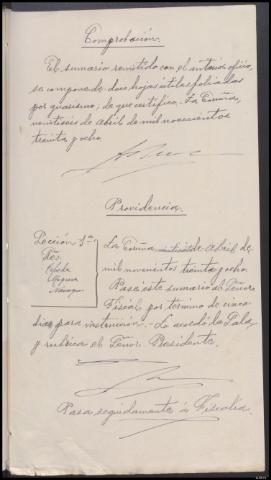 Comprobación.
El sumario remitido con el anterior oficio,
se compone de dos hojas útiles foliadas
por guarismo; de que certifico. La Coruña,
veintiseis de Abril de mil novecientos
treinta y ocho.
Providencia.
Sección 1ª
Sres.
La Coruña veintiseis de Abril de
mil novecientos treinta y ocho.
Pase este sumario al Señor
Fiscal por término de cinco
dias para instrucción.- Lo acordó la Sala,
y rubrica el Señor Presidente.
Pasa seguidamente á Fiscalia.